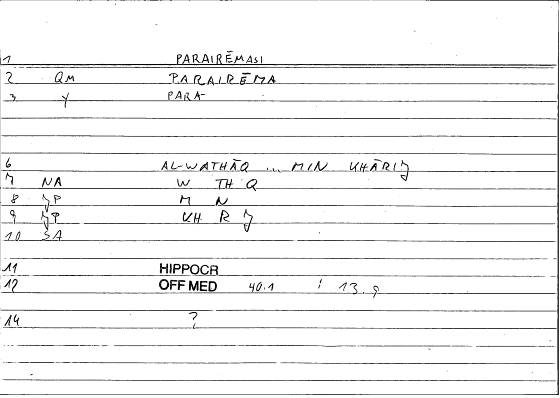 1 PARAIRĒMASI
2 QM PARAIRĒMA
3 Y PARA-
6 AL-WATHĀQ ... MIN KHĀRIJ
7 NA W TH Q
8 JP M N
9 JP KH R J
10 SA
11 HIPPOCR
12 OFF MED 40.1 : 13.9
14 ?